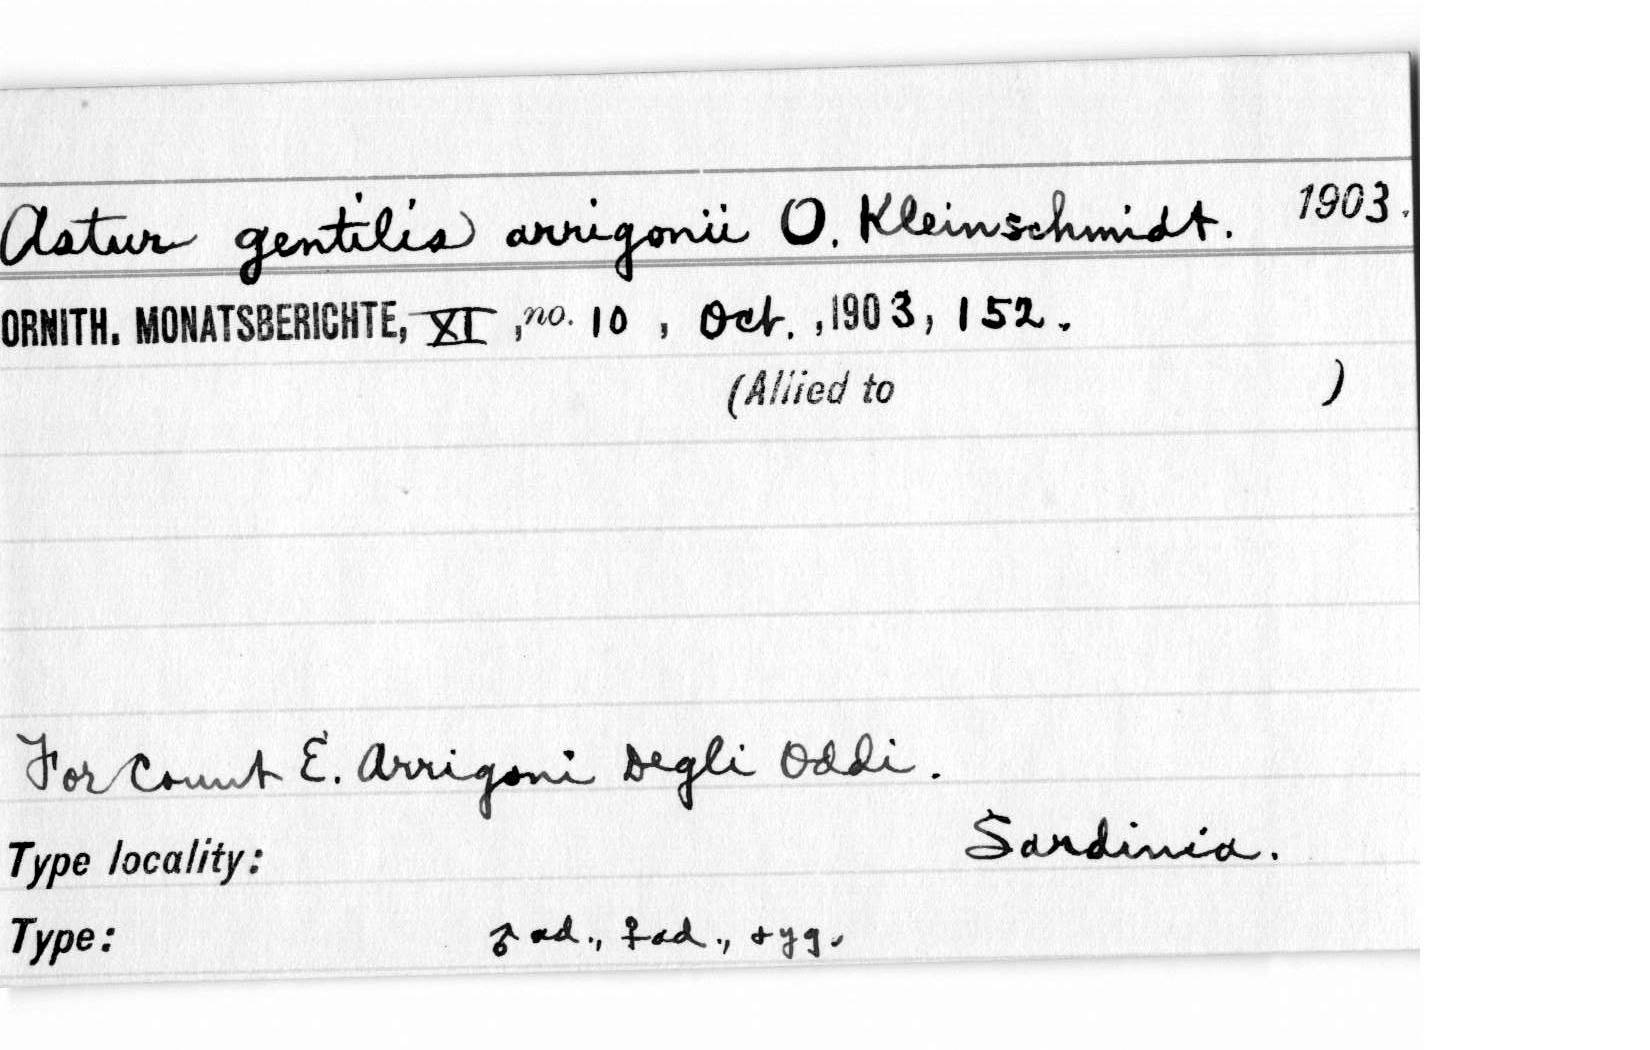 Astur gentilis arrigonii O. Kleinschmidt. 1903.
ORNITH. MONATSBERICHTE, XI, no. 10, Oct., 1903, 152.
(Allied to )
For Count E. Arrigoni Degli Oddi.
Type locality: Sardinia.
Type: ♂ ad., ♀ ad., + yg.